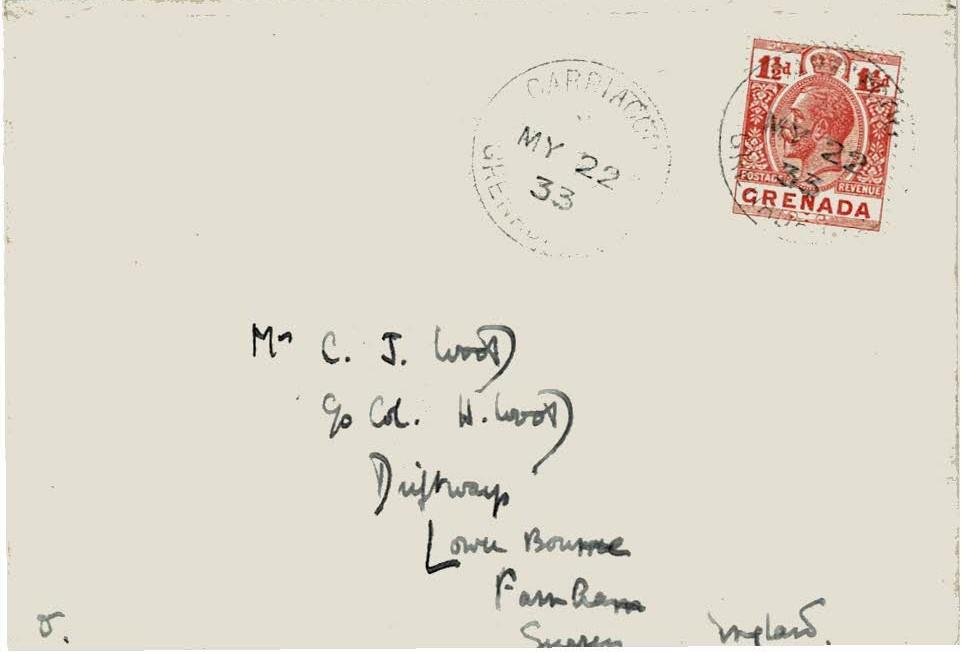 CARRIACOU
MY 22
33
GRENADA
1½d 1½d
MY 22
33
POSTAGE REVENUE
GRENADA
Mr C. J. Wood
c/o Col. H. Wood
Driftways
Lower Bourne
Farnham
Surrey England.